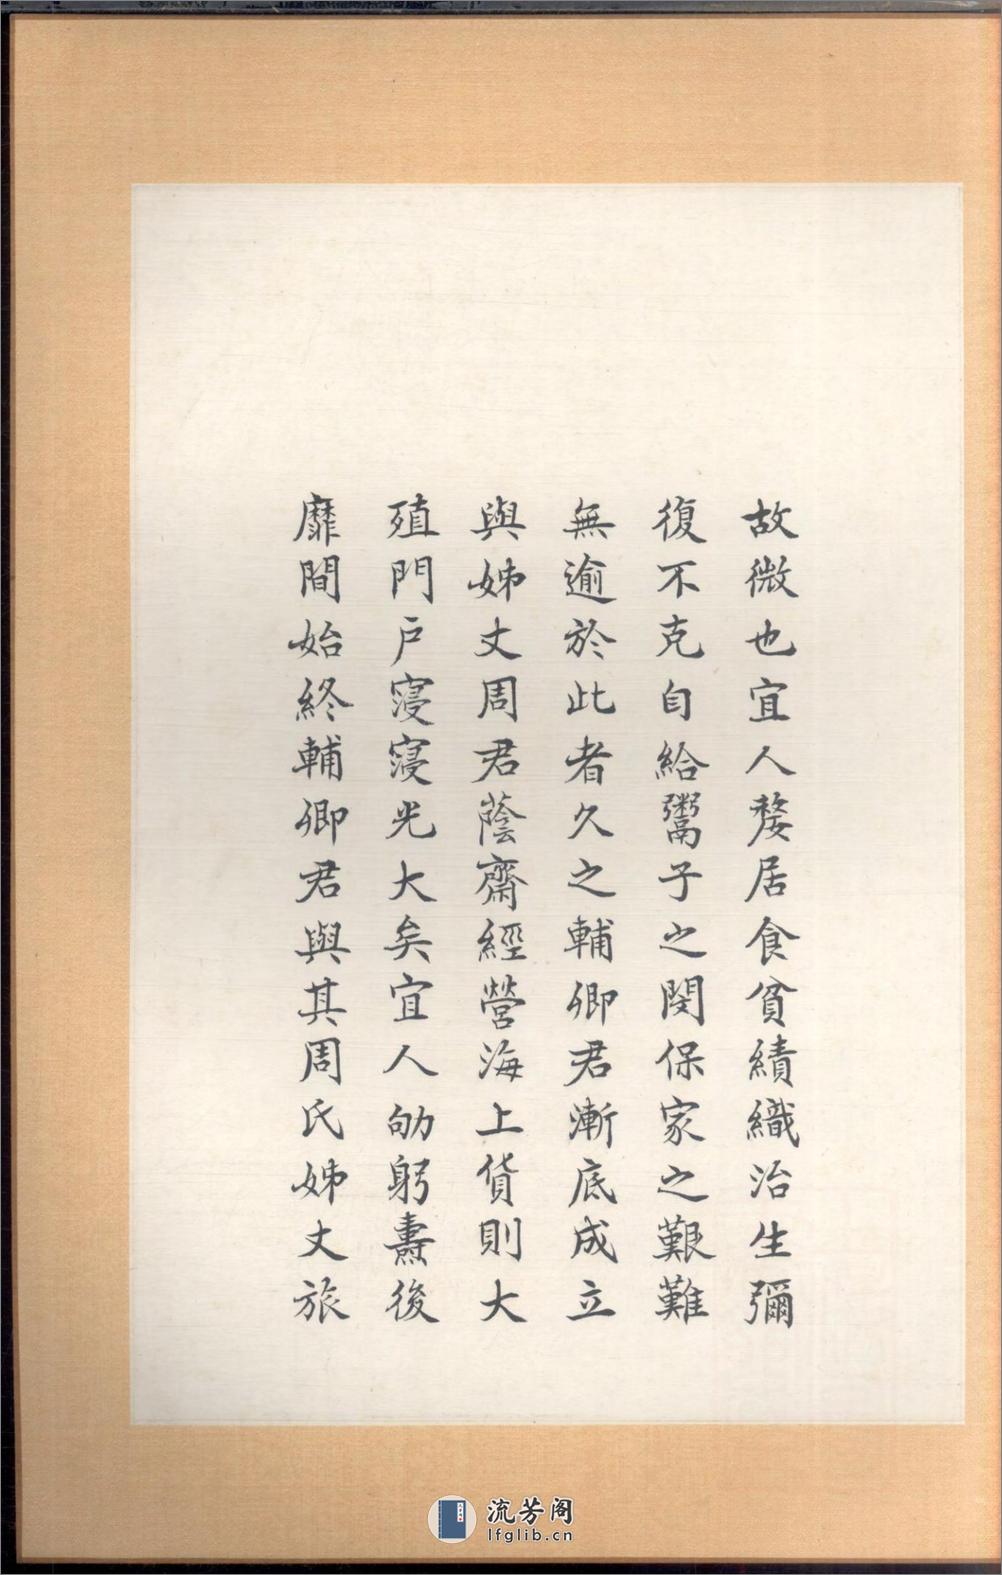 故微也宜人嫠居食貧績織治生彌
復不克自給鬻子之閔保家之艱難
無逾於此者久之輔卿君漸底成立
與姊丈周君蔭齋經營海上貨則大
殖門戶寖寖光大矣宜人劬躬燾後
靡間始終輔卿君與其周氏姊丈旅
流芳阁
lfglib.cn